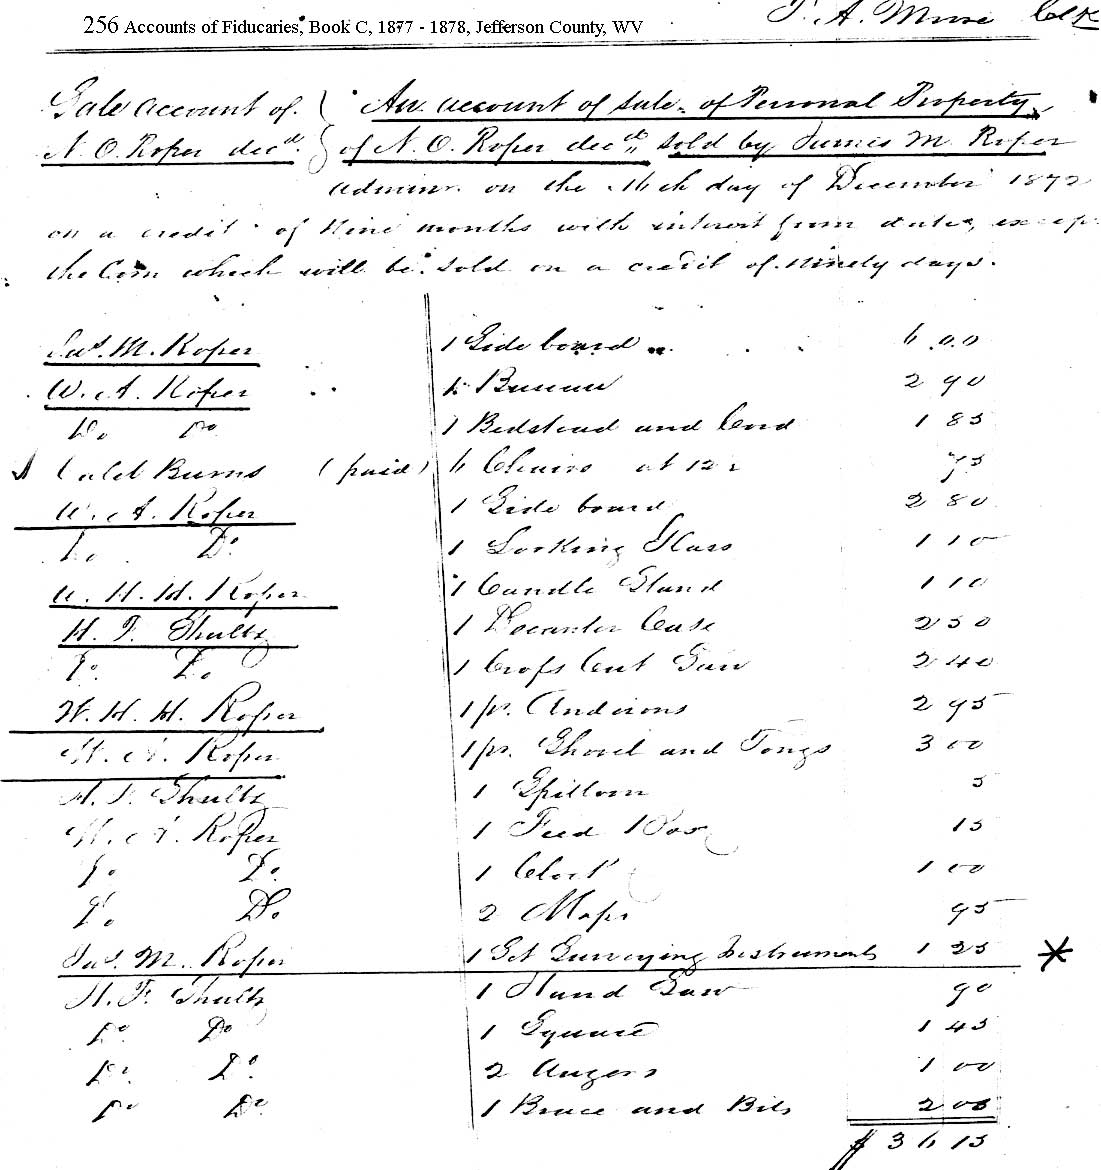 256 Accounts of Fiducaries, Book C, 1877 - 1878, Jefferson County, WV
T. A. Moore Clk
Sale account of
N. O. Roper decd.
An account of sale of Personal Property
of N. O. Roper decd sold by James M. Roper
admin. on the 11th day of December 1872
on a credit of Nine months with interest from date, excep
the Corn which will be sold on a credit of Ninety days.
Jas. M. Roper 1 Side board 6 00
W. A. Roper 1 Bureau 2 90
Do Do 1 Bedstead and Cord 1 85
Caleb Burns (paid) 6 Chairs at 12½ 75
W. A. Roper 1 Side board 2 80
Do Do 1 Looking Glass 1 10
W. H. H. Roper 1 Candle Stand 1 10
H. F. Shultz 1 Decanter Case 2 50
Do Do 1 Cross Cut Saw 2 40
W. H. H. Roper 1 pr. Andirons 2 95
W. A. Roper 1 pr. Shovel and Tongs 3 00
H. F. Shultz 1 Spittoon 5
W. A. Roper 1 Feed Box 15
Do Do 1 Clock 1 00
Do Do 2 Maps 95
Jas. M. Roper 1 Set Surveying Instruments 1 25 *
H. F. Shultz 1 Hand Saw 90
Do Do 1 Square 1 45
Do Do 2 Augers 1 00
Do Do 1 Brace and Bits 2 00
$ 36 15